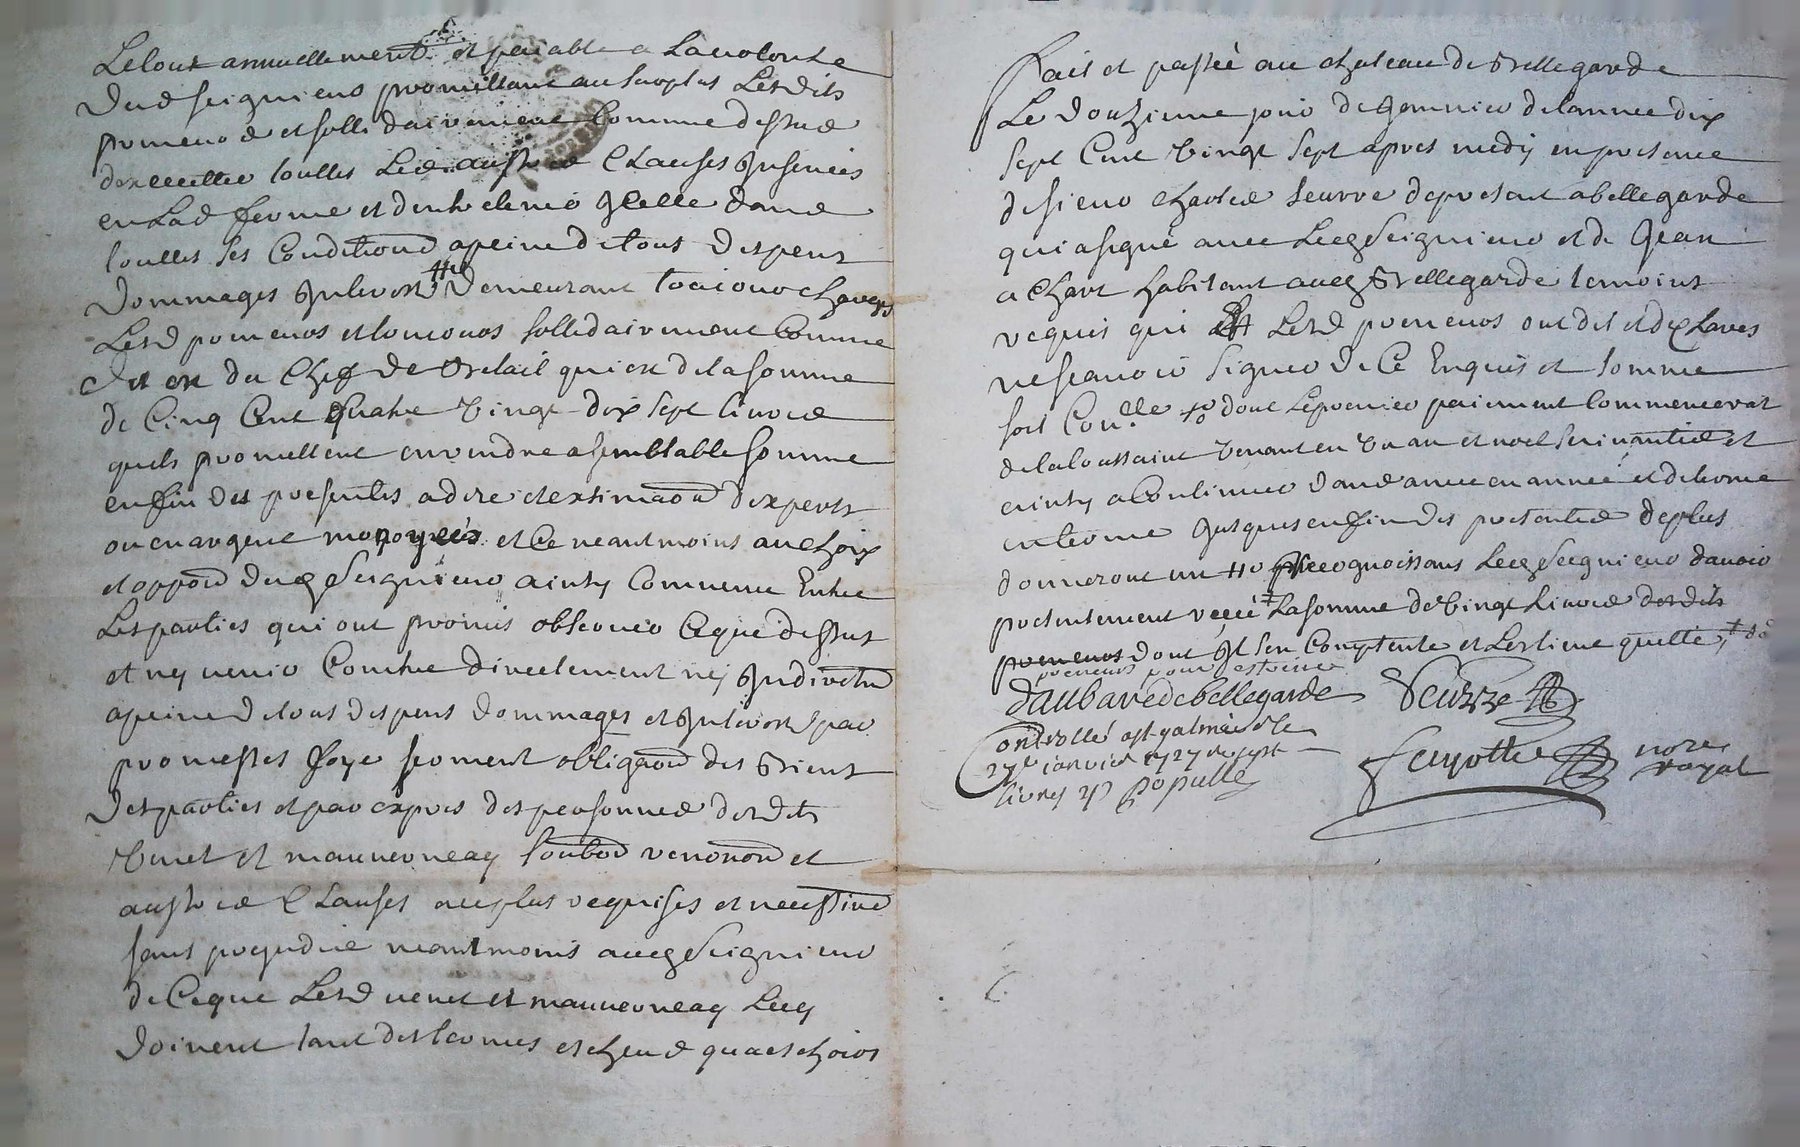 Le tout annuellement et paiable a La volonte
dud seigneur promettant au surplus Lesdits
preneurs et sollidairement Comme dessus
dexecutter touttes Les austres Clauses Inserées
en Lad ferme et dentretenir Icelle dans
touttes ses Conditions apeine de tous despens
dommages Interest demeurant tousiours chargés
Lesd preneurs et tousiours sollidairement Comme
dit est du chef de Betail qui est de la somme
de Cinq Cent quatre vingt dix sept livres
quils promettent en rendre a semblable somme
en fin des presentes a dire et extimaon dexperts
ou en argent monoyées et Ce neantmoins au choix
et oppon dud Seigneur ainsy Convenu Entre
Les parties qui ont promis observer Ceque dessus
et ny venir Contre directement ny Indirectm
apeine de tous despens dommages et Interest par
promesses foye serment obligaon des Biens
des parties et par expres des personnes desdits
et mauverneay soubon renonon et
austres Clauses au plus requises et necessires
sans prejudice neantmoins aud Seigneur
de Ceque Lesd et mauverneay Luy
doivent tant des termes escheus qua eschoir
Fait et passée au chateau de Bellegarde
Le douzieme jour de Janvier de lannee dix
sept Cent vingt sept apres midy en presence
de sieur charles Seurre de present a bellegarde
qui a signé avec Led Seigneur et de Jean
achart habitant aud Bellegarde temoins
requis qui Lesd preneurs ont dit et declarés
ne scavoir signer de Ce Enquis et somme
soit Con.lle dont le premier paiement Commencerat
de la toussaint venant en un an et noel suivantes et
ainsy a Continuer dans annee en année et de terme
en terme jusques en fin des presentes de plus
donneront un recognoissans Led Seigneur davoir
presentement reçeu La somme de vingt Livres desdits
preneurs dont Il sen Comptente et Les tiens quitte
preneurs pour estreine
daubarede bellegarde Seurre
Controllé a st galmier le
27e janvier 1727 reçu sept
livres Populle
Fayolle nore
royal